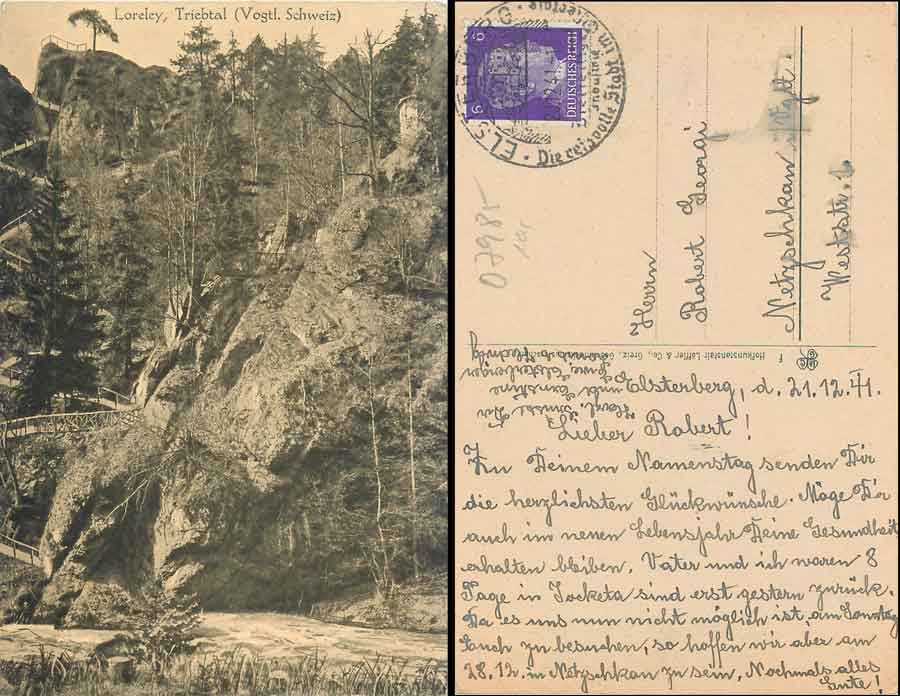 Loreley, Triebtal (Vogtl. Schweiz)
DEUTSCHES REICH
6
6
Die reizvolle Stadt im Elstertale
07985
Herrn
Robert Georgi
Netzschkau i. Vgtl.
Weststr. 1.
F
Hofkunstanstalt Löffler & Co., Greiz,
Elsterberg, d. 21.12.41.
Lieber Robert!
Zu Deinem Namenstag senden Dir
die herzlichsten Glückwünsche. Möge Dir
auch im neuen Lebensjahr Deine Gesundheit
erhalten bleiben. Vater und ich waren 8
Tage in Jocketa sind erst gestern zurück.
Da es uns nun nicht möglich ist, am Sonntag
Euch zu besuchen, so hoffen wir aber am
28.12. in Netzschkau zu sein. Nochmals alles
Gute!
Herzl. Grüsse Dir
und
sowie Elsterberger